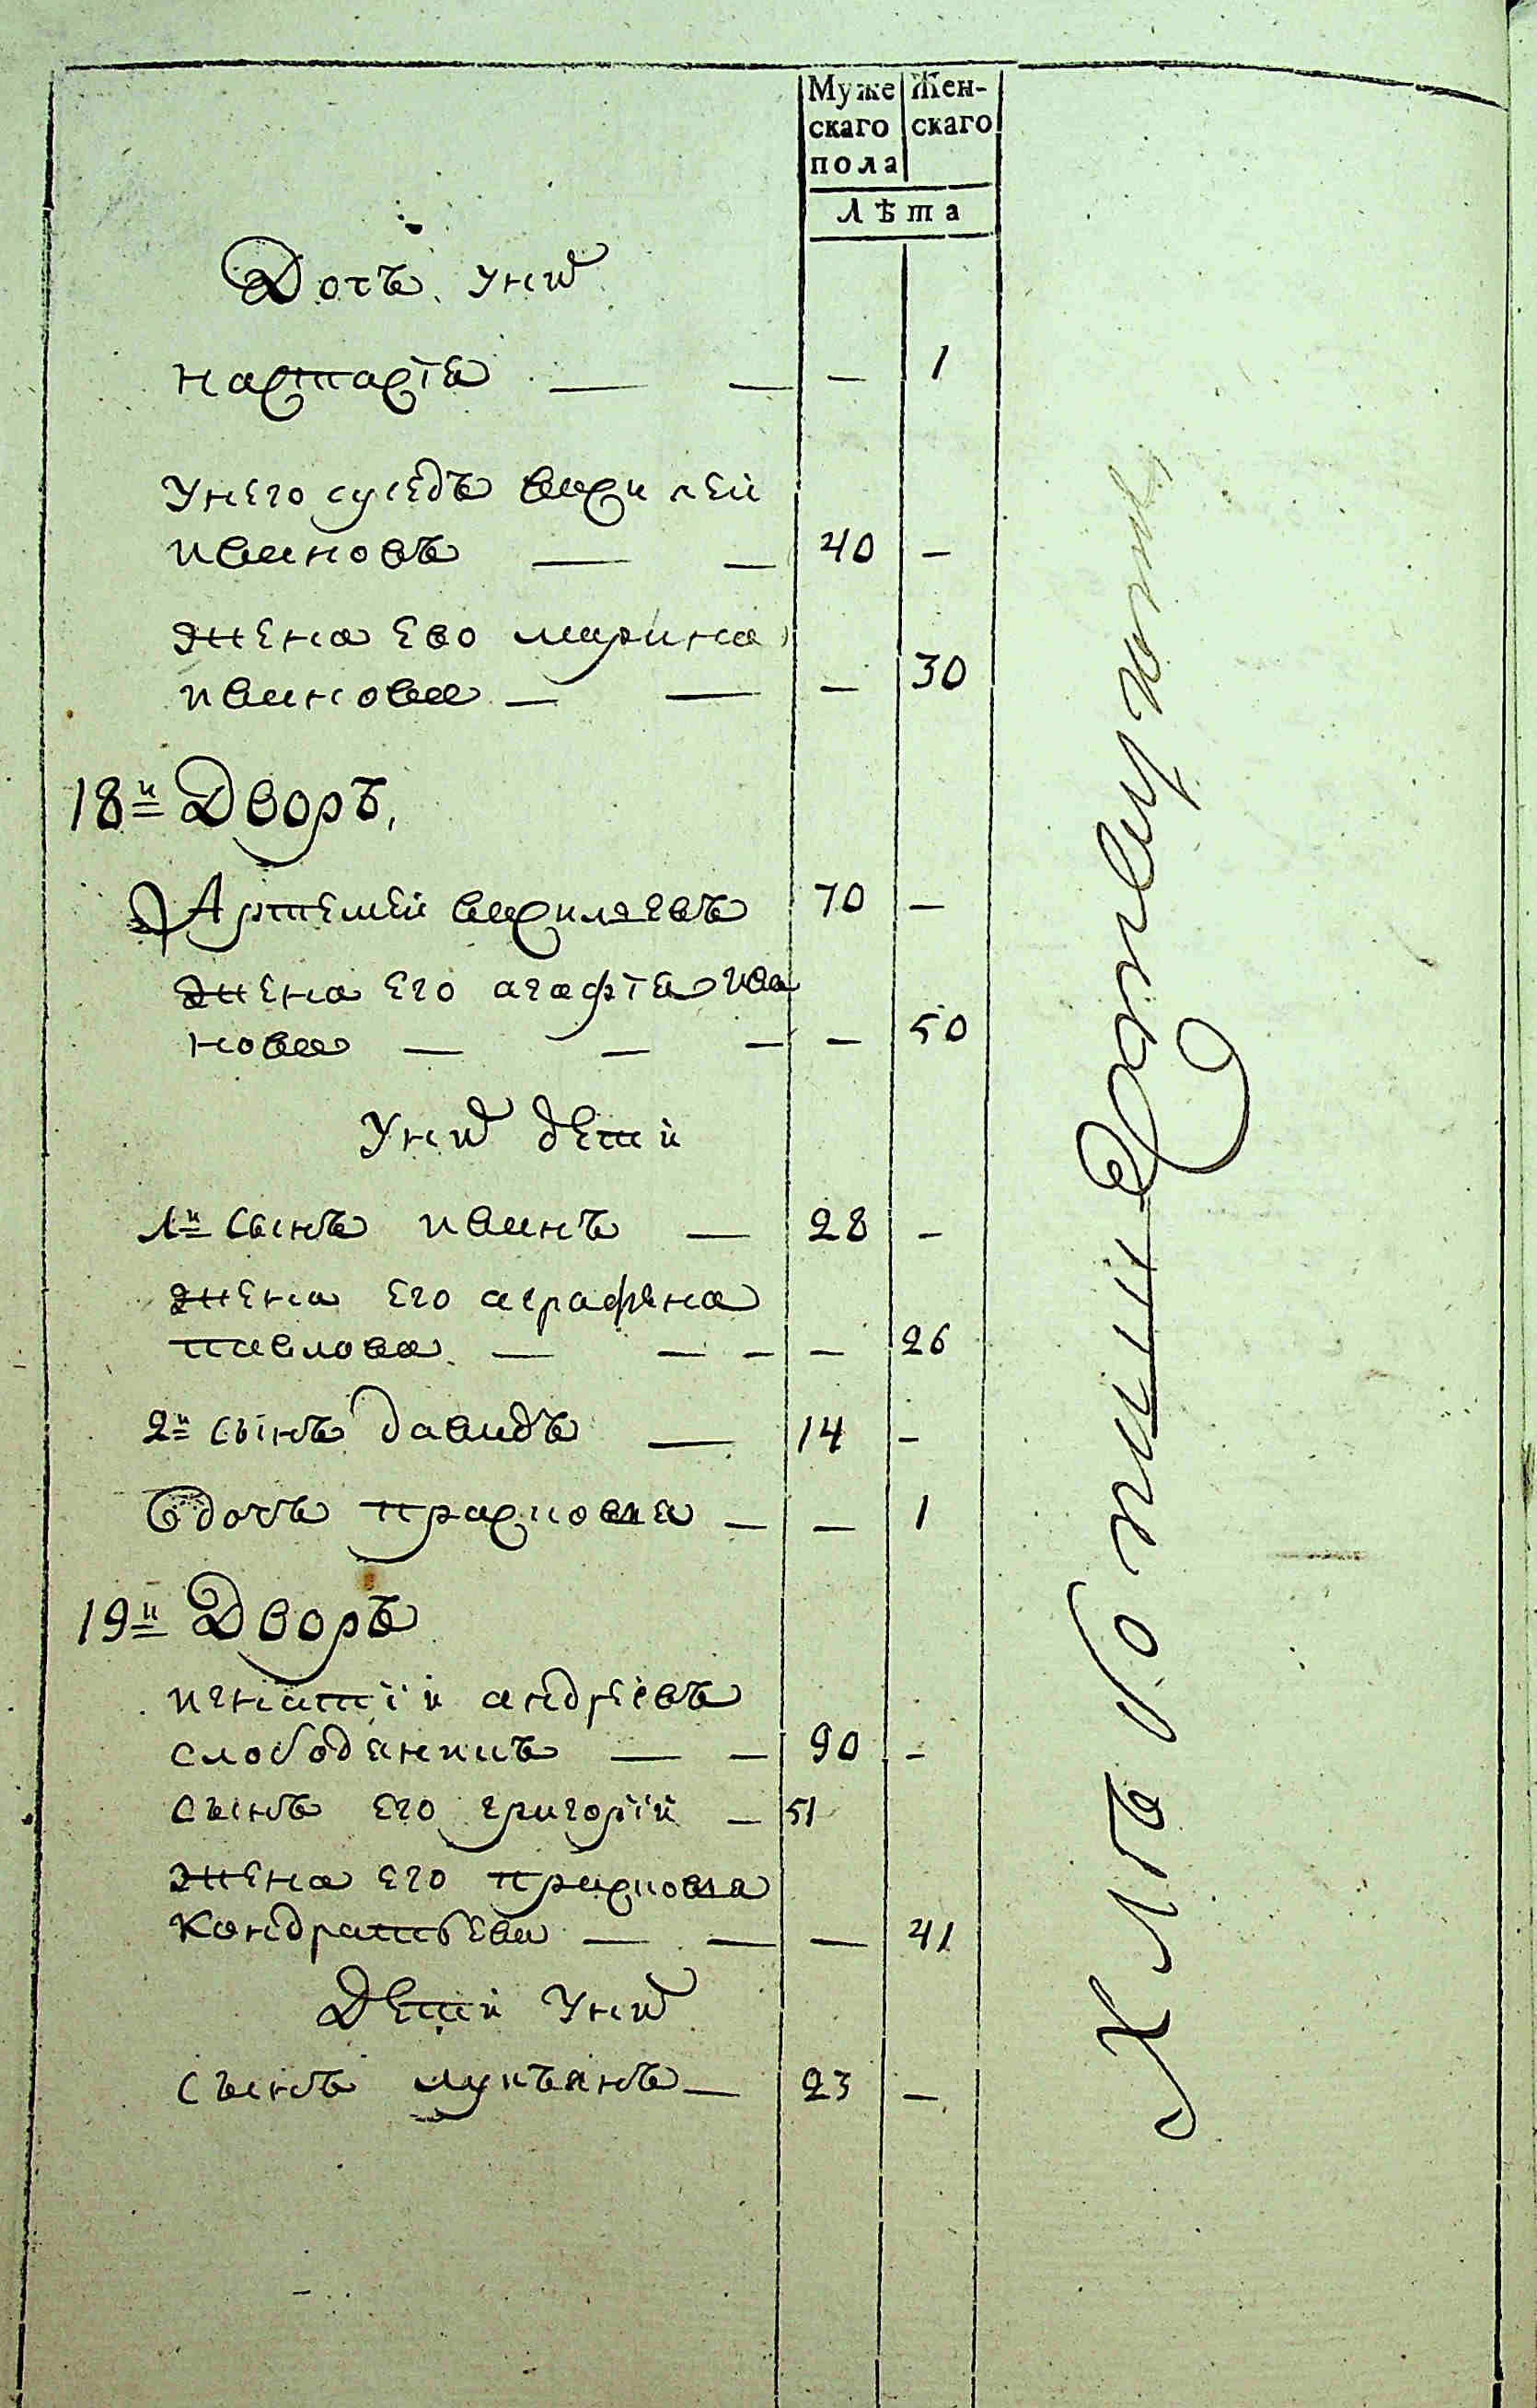 Муже Жен-
скаго скаго
пола
Лѣта
Дочь уних
настасїя — — — 1
Унего суседъ василей
ивановъ — — 40 —
жена ево марина
иванова — — — 30
18й Дворъ,
Артемей васильевъ 70 —
жена его агафїя ива
нова — — — — 50
Уних дети
1й сынъ иванъ — 28 —
жена его аграфена
павлова — — — — 26
2й сынъ давидъ — 14 —
дочь прасковья — — 1
19й Дворъ
игнатїй андрїевъ
слободянинъ — — 90 —
сынъ его григорїй — 51
жена его прасковья
Кондратьева — — — 41
Дети Уних
сынъ лукьянъ — 23 —